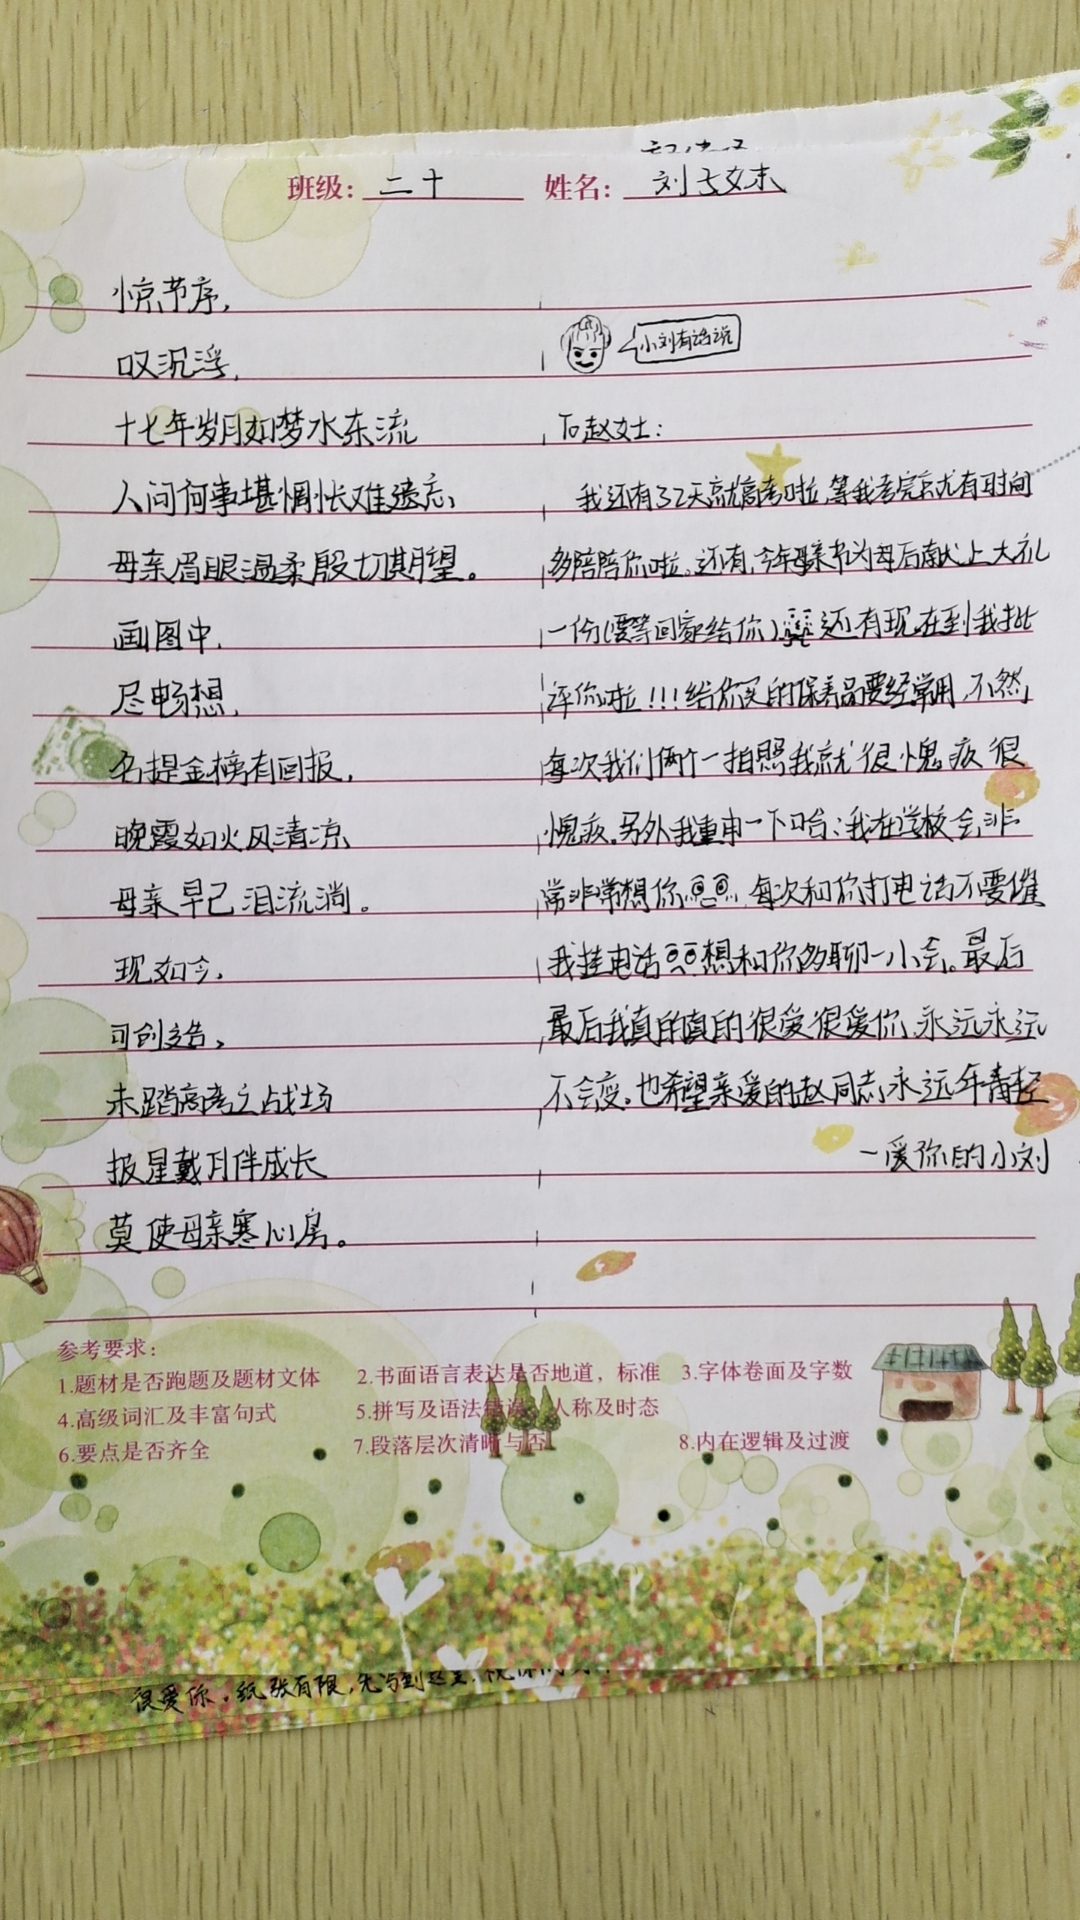 班级：二十 姓名：刘
惊节序，
叹沉浮，
十七年岁月如梦水东流
人间何事堪惆怅难遗忘，
母亲眉眼温柔殷切期望。
画图中，
尽畅想，
名提金榜有回报，
晚霞如火风清凉
母亲早已泪流淌。
现如今，
可创造，
未踏高考之战场
披星戴月伴成长
莫使母亲寒心房。
小刘有话说
To赵女士：
我还有32天就高考啦，等我考完就有时间
多陪陪你啦。还有，今年母亲节为母后献上大礼
一份(要等回家给你)还有现在到我批
评你啦！！！给你买的保养品要经常用，不然，
每次我们俩个一拍照我就很愧疚很
愧疚。另外我重申一下哈：我在学校会非
常非常想你，每次和你打电话不要催
我挂电话想和你多聊一小会。最后
最后我真的真的很爱很爱你，永远永远
不会变。也希望亲爱的赵同志永远年青轻
一爱你的小刘
参考要求：
1.题材是否跑题及题材文体 2.书面语言表达是否地道，标准 3.字体卷面及字数
4.高级词汇及丰富句式 5.拼写及语法错误，人称及时态
6.要点是否齐全 7.段落层次清晰与否 8.内在逻辑及过渡
很爱你。纸张有限，先写到这里，